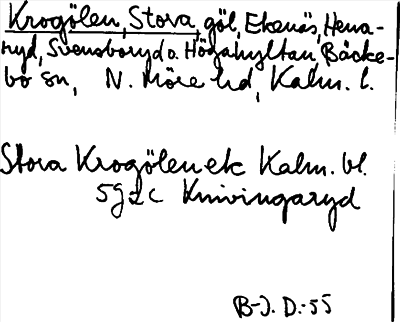 Krogölen, Stora, göl, Ekenäs, Hena-
ryd, Svensboryd o. Högahyltan, Bäcke-
bo sn, N. Möre hd, Kalm. l.
Stora Krogölen ek Kalm. bl.
5g2c Knivingaryd
B-J. D.-55